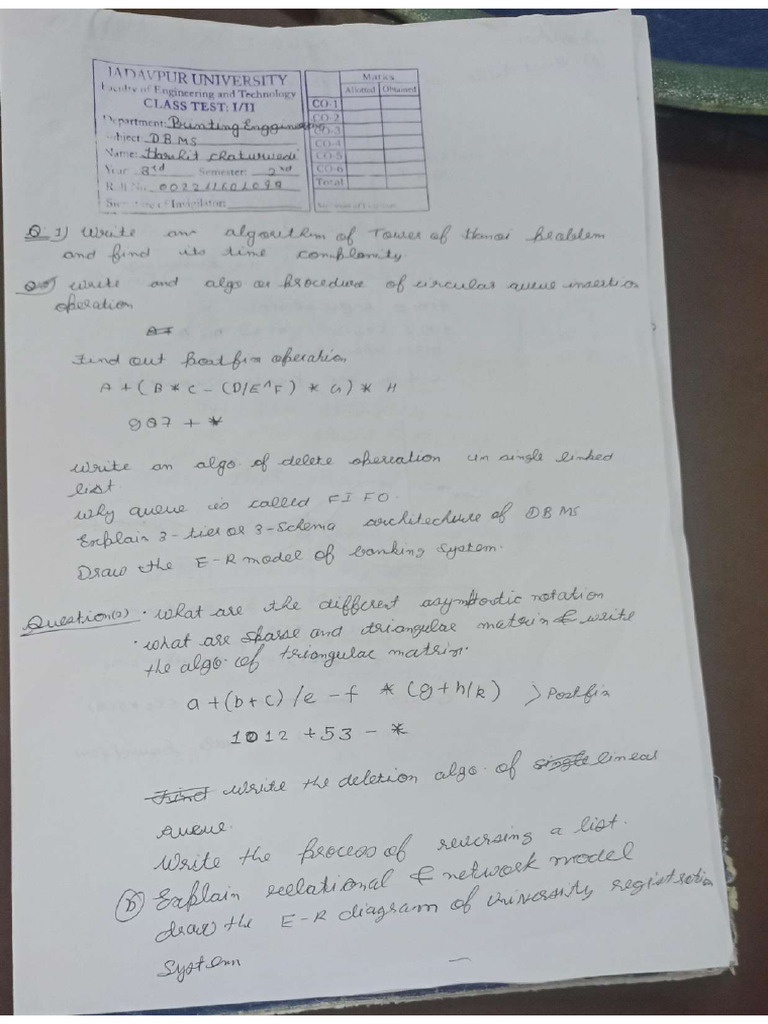 JADAVPUR UNIVERSITY
Faculty of Engineering and Technology
CLASS TEST: I/II
Department: Printing Enggineering
Subject: DBMS
Name: Harshit Chaturvedi
Year 3rd Semester: 2nd
Roll No.
Signature of Invigilator:
Marks
Allotted Obtained
CO-1
CO-2
CO-3
CO-4
CO-5
CO-6
Total
Q 1) Write an algorithm of Tower of Hanoi problem
and find its time complexity.
write and algo or procedure of circular queue insertion
operation
Find out postfix operation
A + ( B * C - (D/E^F) * G) * H
907 + *
write an algo of delete operation in single linked
list.
why queue is called FIFO.
Explain 3-tier or 3-Schema architechure of DBMS
Draw the E-R model of banking system.
Question(2) • what are the different asymptotic notation
• what are sparse and triangular matrix & write
the algo of triangular matrix.
a + (b+c) /e - f * (g+h/k) } Postfix
1012 + 53 - *
Find write the deletion algo. of single linear
queue.
Write the process of reversing a list.
(b) Explain relational & network model
draw the E-R diagram of University registration
System